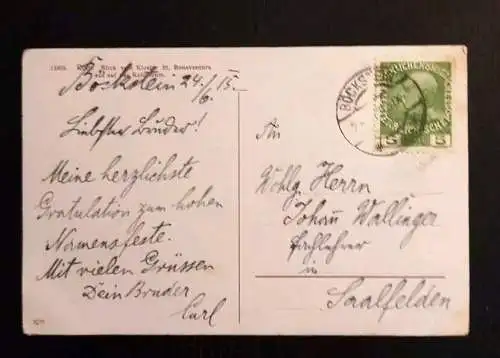 Blick vom Kloster St. Bonaventura
auf das
Böckstein 24./6. 15.
Liebster Bruder!
Meine herzlichste
Gratulation zum hohen
Namensfeste.
Mit vielen Grüssen
Dein Bruder
Carl
BÖCKST
5 5
An
Wohlg. Herrn
Johan̄ Wallinger
Fachlehrer
in
Saalfelden